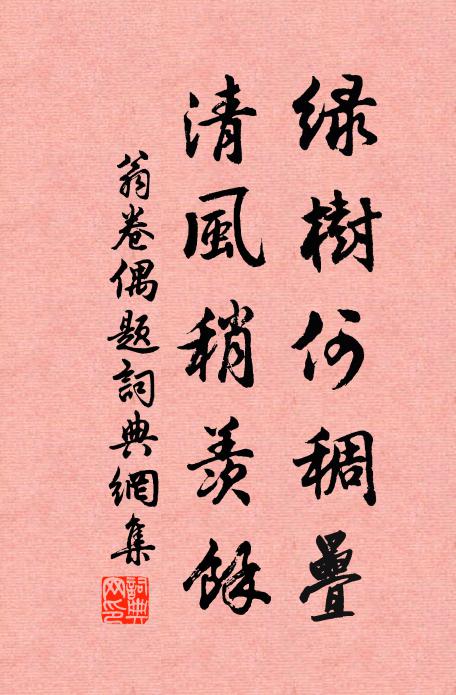 绿樹何稠疊
清風稍羨餘
翁卷偶题詞典網集
詞典网印